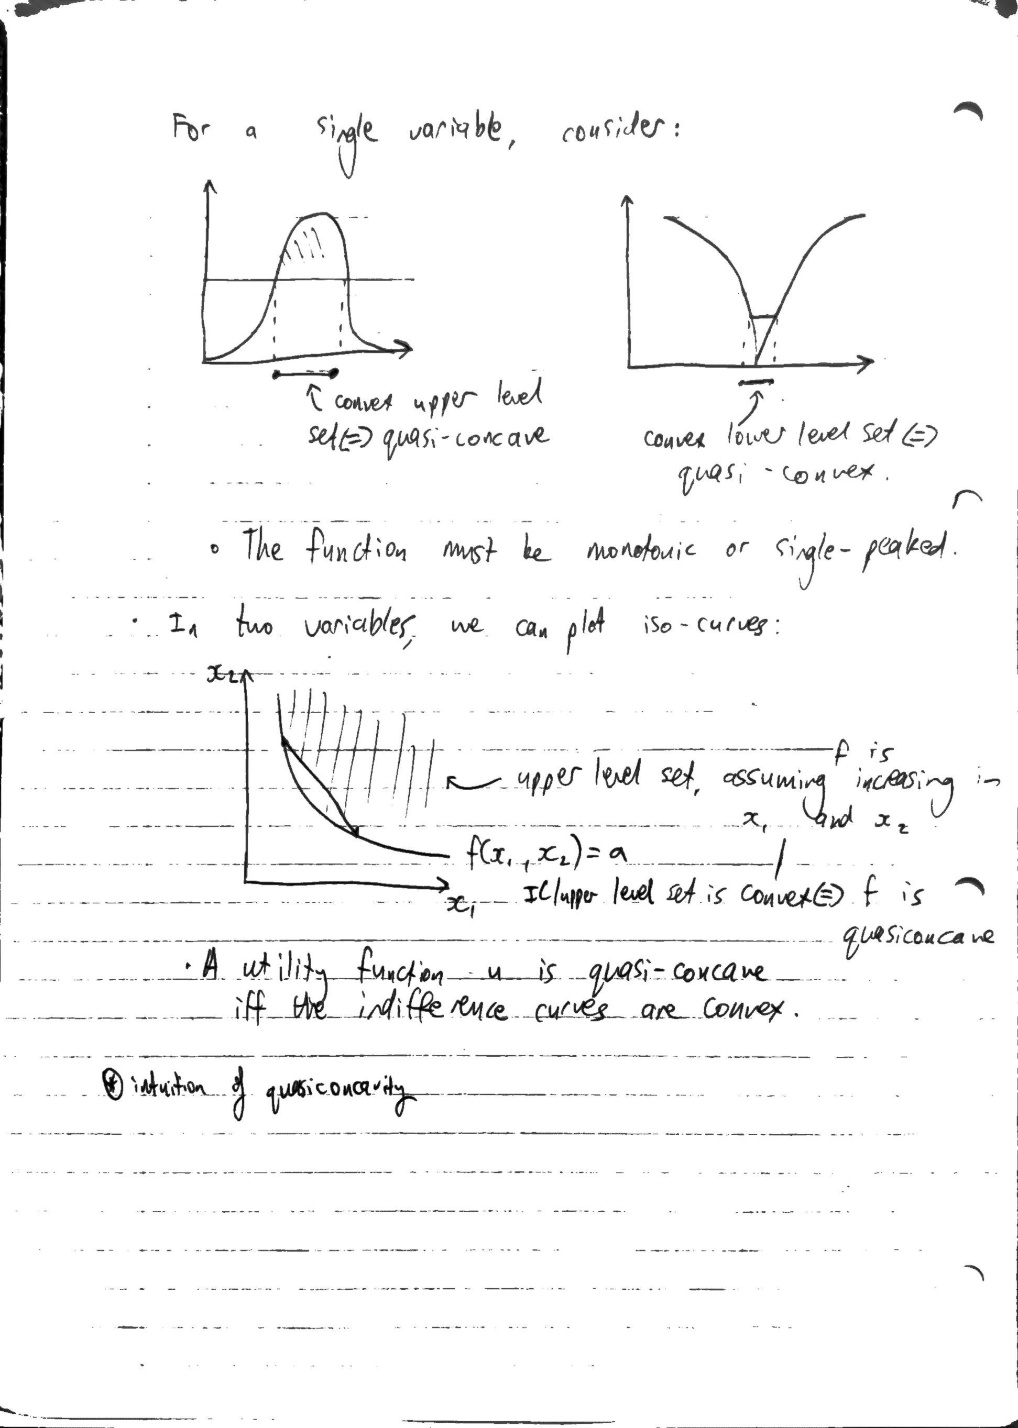 For a single variable, consider:
↑ convex upper level
set⇔ quasi-concave
convex lower level set ⇔
quasi-convex.
◦ The function must be monotonic or single-peaked.
· In two variables, we can plot iso-curves:
x₂
f is
← upper level set, assuming increasing in
x₁ and x₂
f(x₁, x₂) = a
x₁
IC/upper level set is convex⇔ f is
quasiconcave
· A utility function u is quasi-concave
iff the indifference curves are convex.
⊛ intuition of quasiconcavity